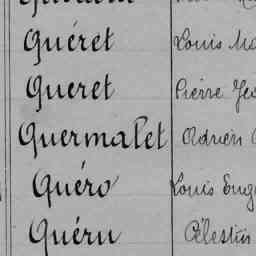 Quéret Louis
Queret Pierre
Quermalet Adrien
Quéro Louis Eug
Quéru Célestin